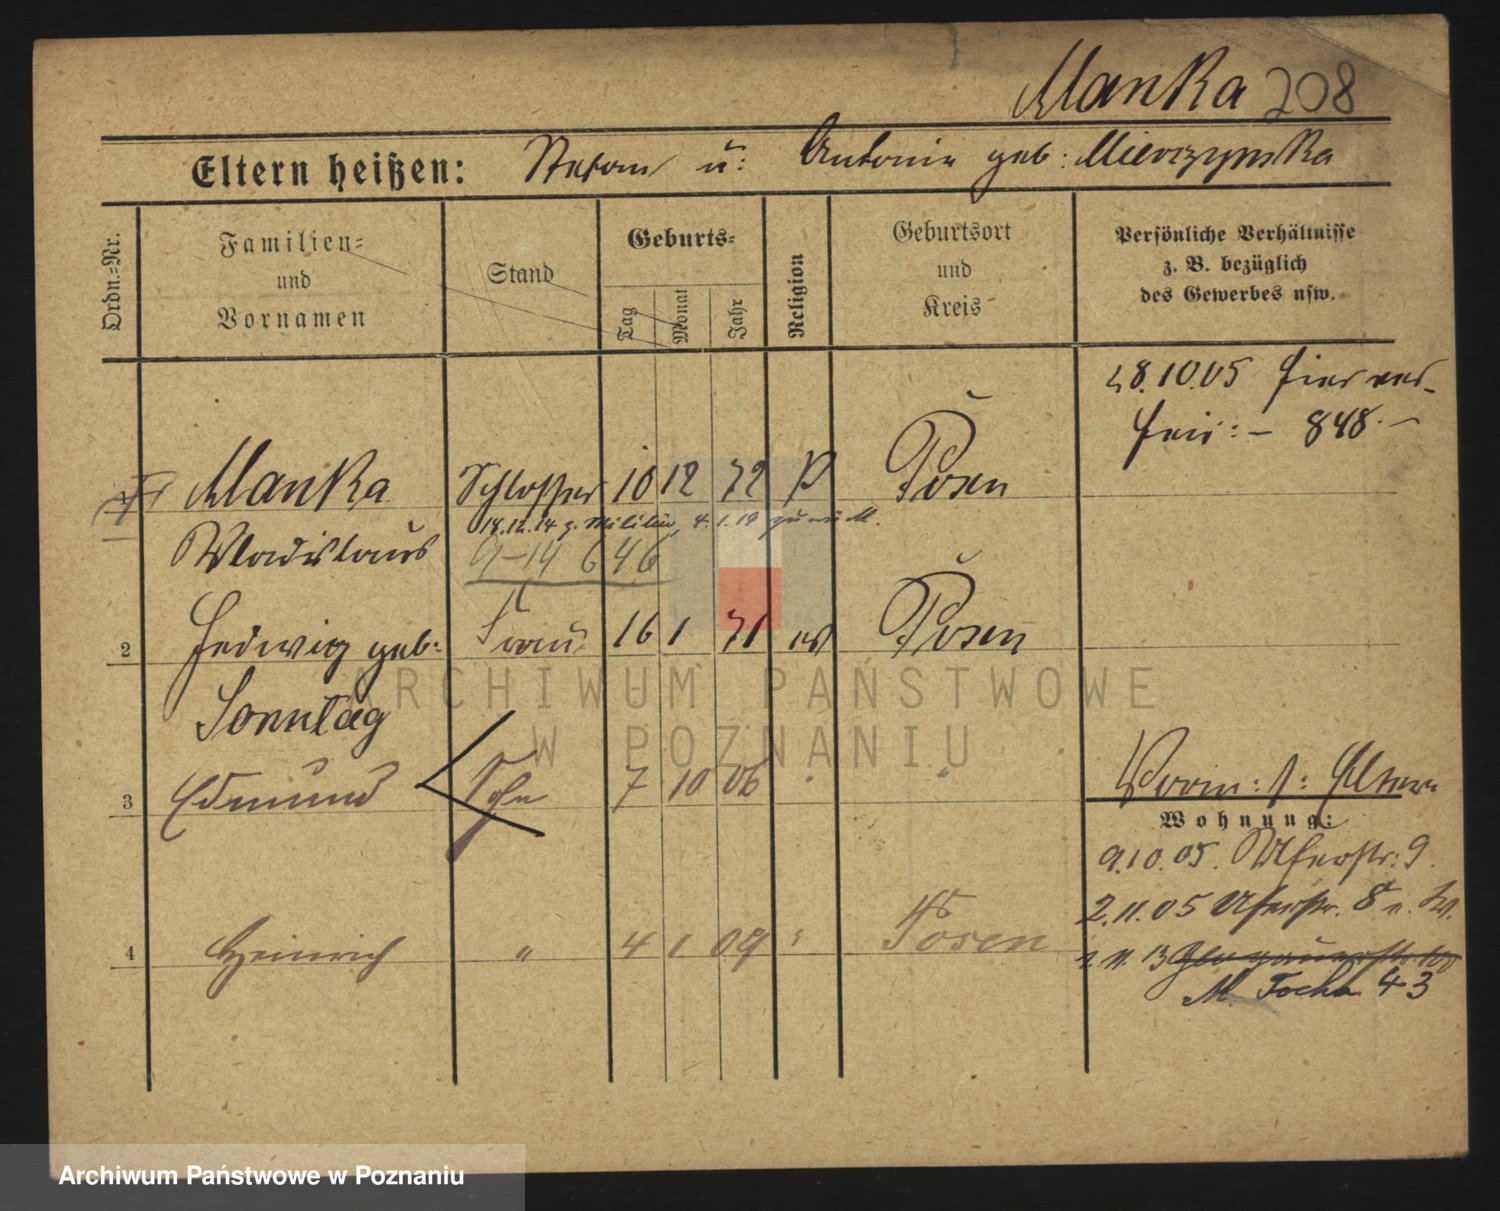 Manka 208
Eltern heißen: Stefan u: Antonie geb: Mierzynska
Ordn.-Nr.
Familien-
und
Vornamen
Stand
Geburts-
Tag
Monat
Jahr
Religion
Geburtsort
und
Kreis
Persönliche Verhältnisse
z. B. bezüglich
des Gewerbes usw.
28.10.05 hier ver-
heir: – 848. –
1 Manka Schlosser 10 12 72 Posen
18.12.14 z. Militär, 4.1.19
Wladislaus 9–14 646
2 Hedwig geb: Frau 16 1 71 Posen
Sonntag
3 Edmund Sohn 7 10 06 "
Eltern
Wohnung:
9.10.05. Uferstr. 9.
2.11.05 Uferstr. 8
4 Heinrich " 4 1 09 " Posen
11. 13 Glogauerstr. 100
M. Focha 43
ARCHIWUM PAŃSTWOWE
W POZNANIU
Archiwum Państwowe w Poznaniu